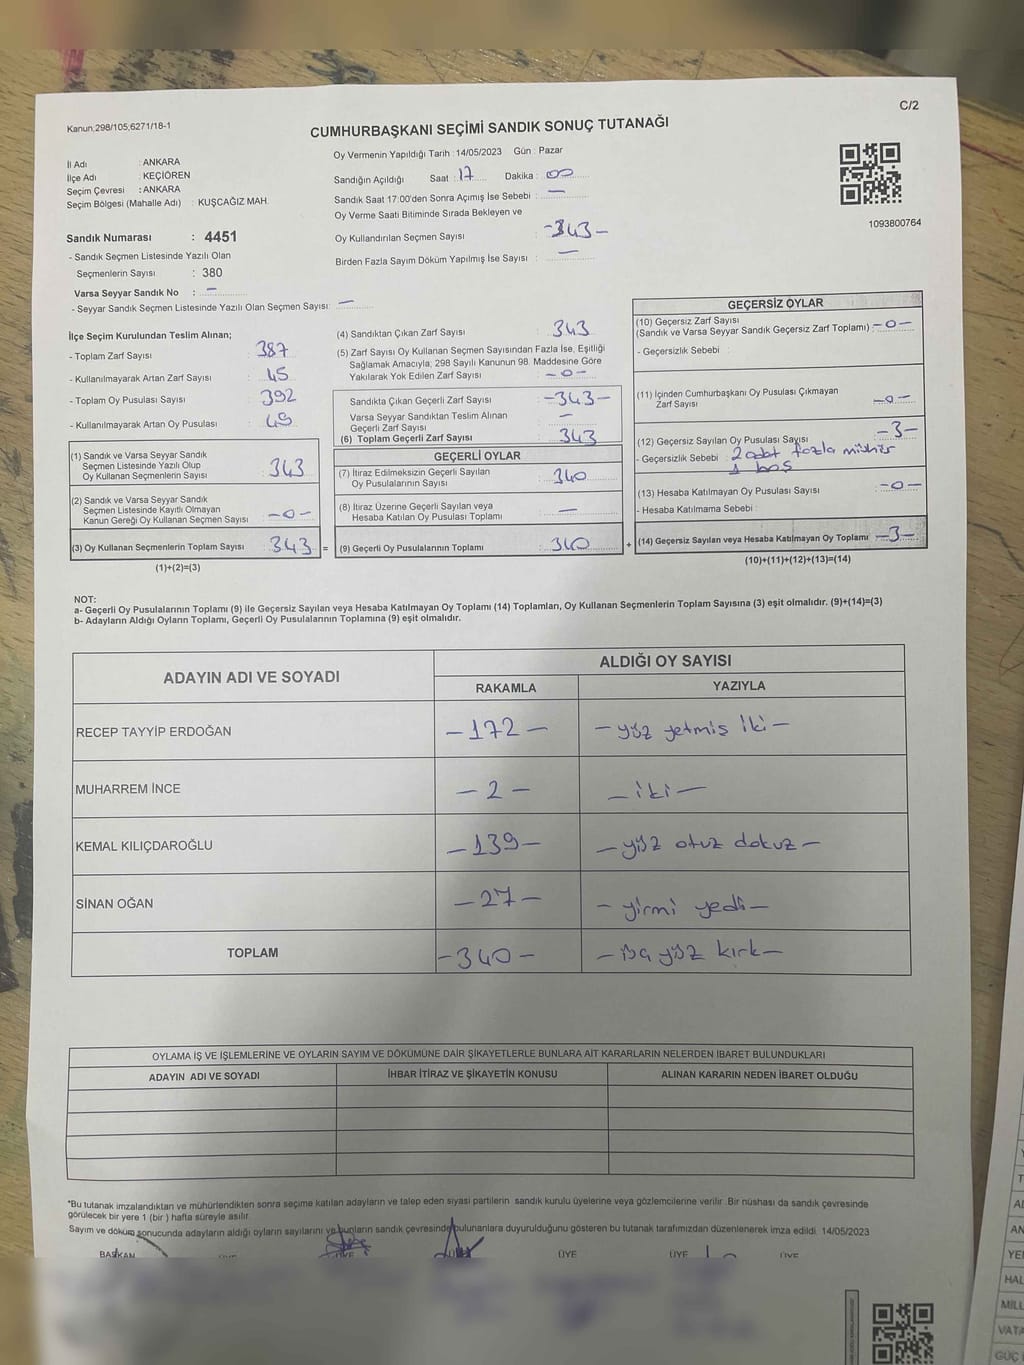 C/2
Kanun:298/105;6271/18-1
CUMHURBAŞKANI SEÇİMİ SANDIK SONUÇ TUTANAĞI
İl Adı : ANKARA
İlçe Adı : KEÇİÖREN
Seçim Çevresi : ANKARA
Seçim Bölgesi (Mahalle Adı) : KUŞCAĞIZ MAH.
Sandık Numarası : 4451
- Sandık Seçmen Listesinde Yazılı Olan
Seçmenlerin Sayısı : 380
Varsa Seyyar Sandık No : —
- Seyyar Sandık Seçmen Listesinde Yazılı Olan Seçmen Sayısı: —
Oy Vermenin Yapıldığı Tarih :14/05/2023 Gün : Pazar
Sandığın Açıldığı Saat : 17 Dakika : 00
Sandık Saat 17:00'den Sonra Açımış İse Sebebi : —
Oy Verme Saati Bitiminde Sırada Bekleyen ve
Oy Kullandırılan Seçmen Sayısı : -343-
Birden Fazla Sayım Döküm Yapılmış İse Sayısı : —
1093800764
İlçe Seçim Kurulundan Teslim Alınan;
- Toplam Zarf Sayısı : 387
- Kullanılmayarak Artan Zarf Sayısı : 45
- Toplam Oy Pusulası Sayısı : 392
- Kullanılmayarak Artan Oy Pusulası : 49
(1) Sandık ve Varsa Seyyar Sandık
Seçmen Listesinde Yazılı Olup
Oy Kullanan Seçmenlerin Sayısı : 343
(2) Sandık ve Varsa Seyyar Sandık
Seçmen Listesinde Kayıtlı Olmayan
Kanun Gereği Oy Kullanan Seçmen Sayısı : -0-
(3) Oy Kullanan Seçmenlerin Toplam Sayısı : 343
(1)+(2)=(3)
(4) Sandıktan Çıkan Zarf Sayısı : 343
(5) Zarf Sayısı Oy Kullanan Seçmen Sayısından Fazla İse, Eşitliği
Sağlamak Amacıyla; 298 Sayılı Kanunun 98. Maddesine Göre
Yakılarak Yok Edilen Zarf Sayısı : -0-
Sandıkta Çıkan Geçerli Zarf Sayısı : -343-
Varsa Seyyar Sandıktan Teslim Alınan
Geçerli Zarf Sayısı : —
(6) Toplam Geçerli Zarf Sayısı : 343
GEÇERLİ OYLAR
(7) İtiraz Edilmeksizin Geçerli Sayılan
Oy Pusulalarının Sayısı : 340
(8) İtiraz Üzerine Geçerli Sayılan veya
Hesaba Katılan Oy Pusulası Toplamı : —
= (9) Geçerli Oy Pusulalarının Toplamı : 340
GEÇERSİZ OYLAR
(10) Geçersiz Zarf Sayısı
(Sandık ve Varsa Seyyar Sandık Geçersiz Zarf Toplamı) : -0-
- Geçersizlik Sebebi :
(11) İçinden Cumhurbaşkanı Oy Pusulası Çıkmayan
Zarf Sayısı : -0-
(12) Geçersiz Sayılan Oy Pusulası Sayısı : -3-
- Geçersizlik Sebebi : 2 adet fazla mühür
1 boş
(13) Hesaba Katılmayan Oy Pusulası Sayısı : -0-
- Hesaba Katılmama Sebebi :
+ (14) Geçersiz Sayılan veya Hesaba Katılmayan Oy Toplamı : -3-
(10)+(11)+(12)+(13)=(14)
NOT:
a- Geçerli Oy Pusulalarının Toplamı (9) ile Geçersiz Sayılan veya Hesaba Katılmayan Oy Toplamı (14) Toplamları, Oy Kullanan Seçmenlerin Toplam Sayısına (3) eşit olmalıdır. (9)+(14)=(3)
b- Adayların Aldığı Oyların Toplamı, Geçerli Oy Pusulalarının Toplamına (9) eşit olmalıdır.
ADAYIN ADI VE SOYADI
ALDIĞI OY SAYISI
RAKAMLA YAZIYLA
RECEP TAYYİP ERDOĞAN -172- -yüz yetmiş iki-
MUHARREM İNCE -2- -iki-
KEMAL KILIÇDAROĞLU -139- -yüz otuz dokuz-
SİNAN OĞAN -27- -yirmi yedi-
TOPLAM -340- yüz kırk-
OYLAMA İŞ VE İŞLEMLERİNE VE OYLARIN SAYIM VE DÖKÜMÜNE DAİR ŞİKAYETLERLE BUNLARA AİT KARARLARIN NELERDEN İBARET BULUNDUKLARI
ADAYIN ADI VE SOYADI İHBAR İTİRAZ VE ŞİKAYETİN KONUSU ALINAN KARARIN NEDEN İBARET OLDUĞU
*Bu tutanak imzalandıktan ve mühürlendikten sonra seçime katılan adayların ve talep eden siyasi partilerin sandık kurulu üyelerine veya gözlemcilerine verilir. Bir nüshası da sandık çevresinde
görülecek bir yere 1 (bir) hafta süreyle asılır.
Sayım ve döküm sonucunda adayların aldığı oyların sayılarını ve bunların sandık çevresinde bulunanlara duyurulduğunu gösteren bu tutanak tarafımızdan düzenlenerek imza edildi. 14/05/2023
BAŞKAN ÜYE ÜYE ÜYE ÜYE
YE
HAL
MİLL
VATA
GÜÇ